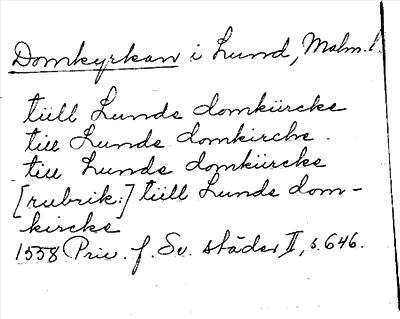 Domkyrkan i Lund, Malm.l.
tüll Lunde domkürcke
till Lunde domkirche.
till Lunde domkürcke
[rubrik:] tüll Lunde dom-
kircke
1558 Priv. f. Sv. städer II, s. 646.